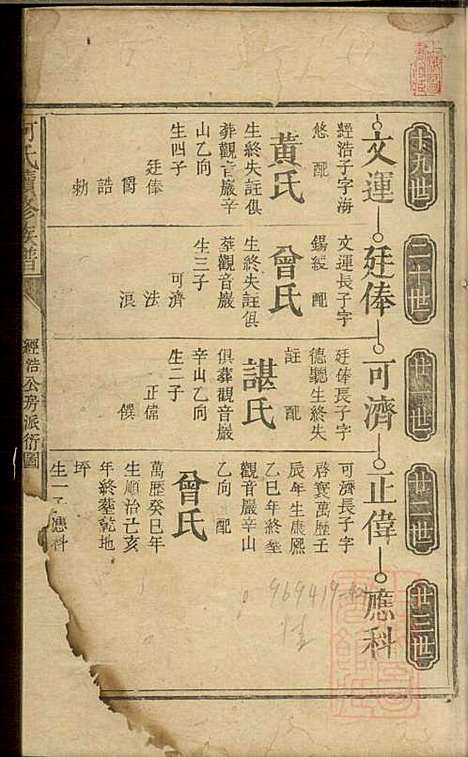 十九世
二十世
廿一世
廿二世
廿三世
文運
廷俸
可濟
正偉
應科
經浩子字海
悠 配
黃氏
生終失註俱
葬觀音巖辛
山乙向
生四子
廷俸
爵
誥
勑
文運長子字
錫綬 配
曾氏
生終失註俱
塟觀音巖
生三子
可濟
法
浪
廷俸長子字
德聽生終失
註 配
諶氏
俱葬觀音巖
辛山乙向
生二子
正偉
僕
可濟長子字
啓寰萬歷壬
辰年生康熙
乙巳年終塟
觀音巖辛山
乙向 配
曾氏
萬歷癸巳年
生順治己亥
年終塟乾地
坪
生一子應科
何氏續修族譜
經浩公房派衍圖